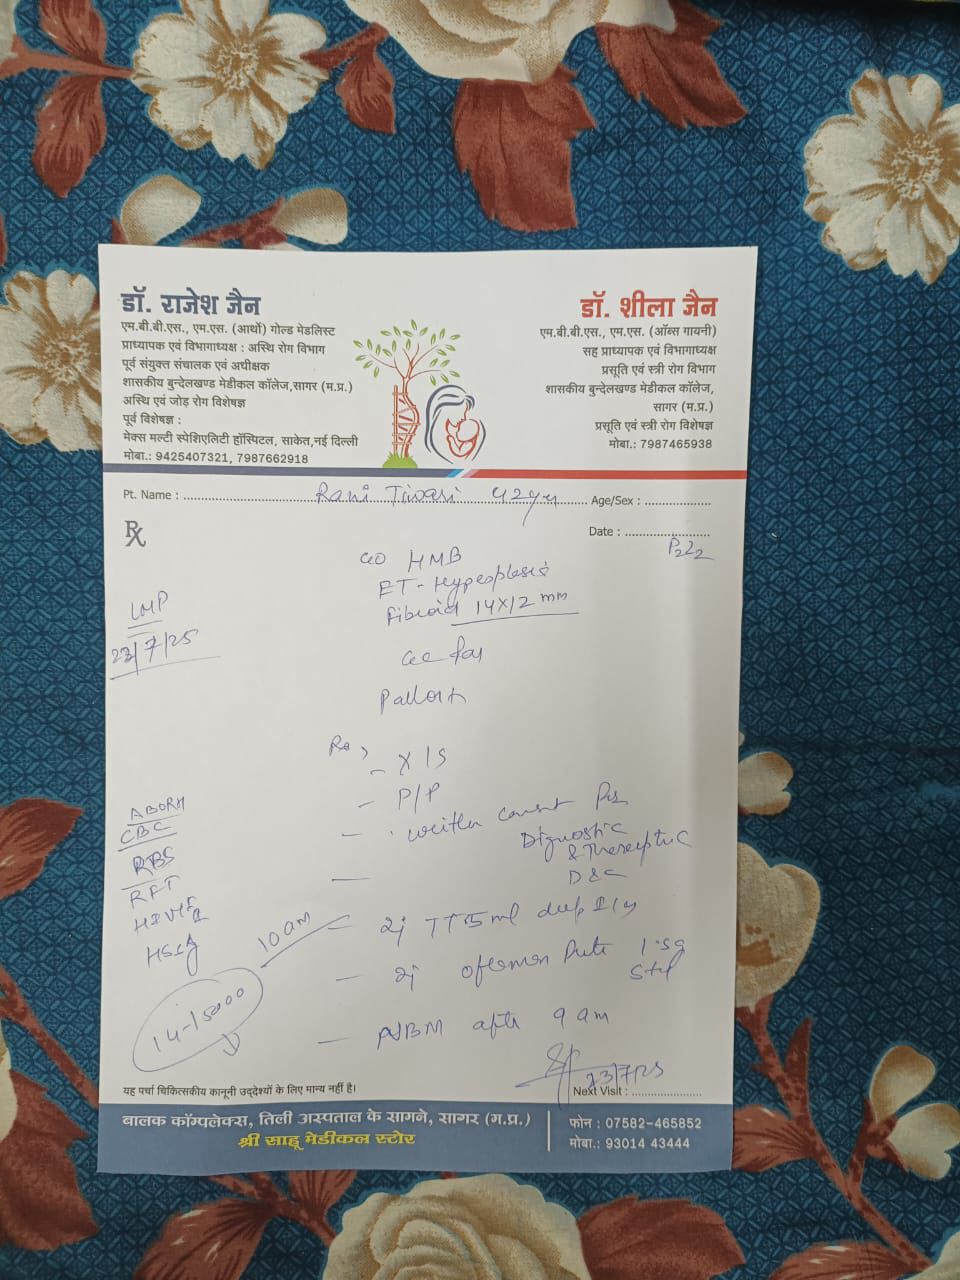 डॉ. राजेश जैन
एम.बी.बी.एस., एम.एस. (आर्थो) गोल्ड मेडलिस्ट
प्राध्यापक एवं विभागाध्यक्ष : अस्थि रोग विभाग
पूर्व संयुक्त संचालक एवं अधीक्षक
शासकीय बुन्देलखण्ड मेडीकल कॉलेज,सागर (म.प्र.)
अस्थि एवं जोड़ रोग विशेषज्ञ
पूर्व विशेषज्ञ :
मेक्स मल्टी स्पेशिएलिटी हॉस्पिटल, साकेत,नई दिल्ली
मोबा.: 9425407321, 7987662918
डॉ. शीला जैन
एम.बी.बी.एस., एम.एस. (ऑब्स गायनी)
सह प्राध्यापक एवं विभागाध्यक्ष
प्रसूति एवं स्त्री रोग विभाग
शासकीय बुन्देलखण्ड मेडीकल कॉलेज,
सागर (म.प्र.)
प्रसूति एवं स्त्री रोग विशेषज्ञ
मोबा.: 7987465938
Pt. Name : Rani Tiwari 42yr Age/Sex :
Rx
Date :
P2L2
c/o HMB
ET-Hyperplasia
fibroid 14X12 mm
LMP
23/7/25
Pallor+
P/P
written consent for
Diagnostic
& Therapeutic
D&C
ABORH
CBC
RBS
RFT
HIV
10 am
TT 5 ml deep
stat
14-15000
NBM after 9 am
23/7/25
यह पर्चा चिकित्सकीय कानूनी उद्देश्यों के लिए मान्य नहीं है।
Next Visit :
बालक कॉम्पलेक्स, तिली अस्पताल के सामने, सागर (म.प्र.)
श्री साहू मेडीकल स्टोर
फोन : 07582-465852
मोबा.: 93014 43444